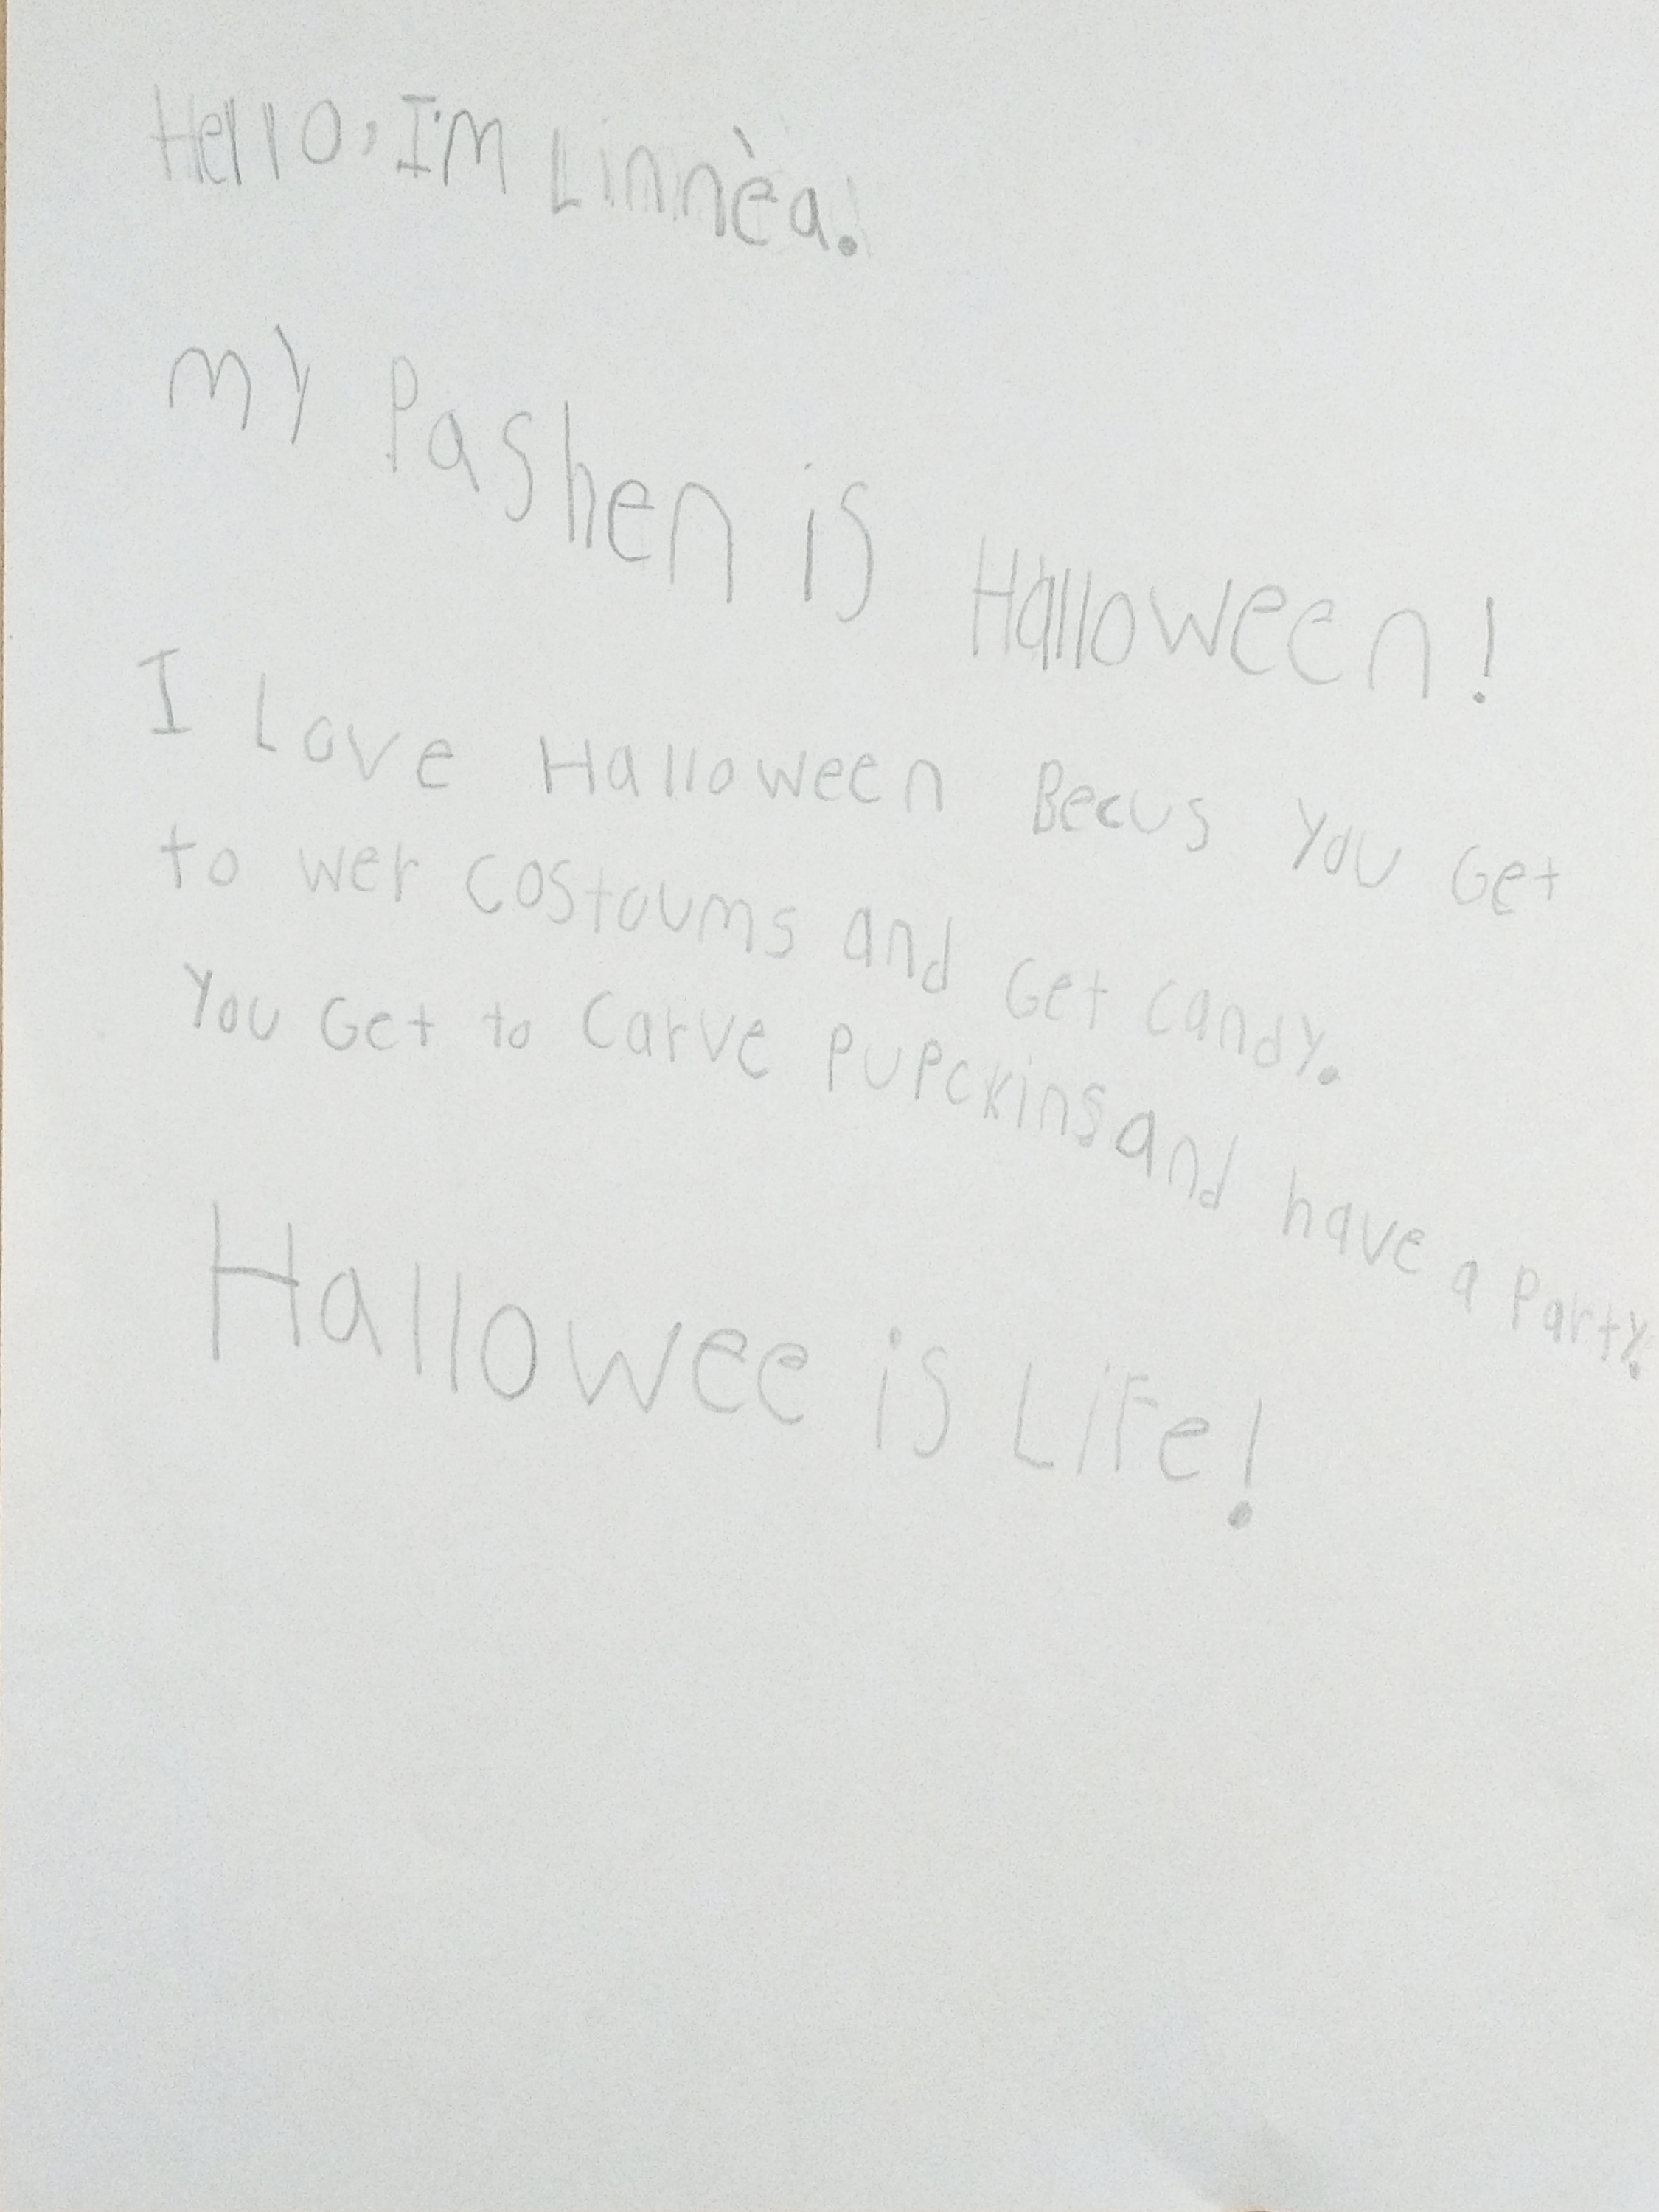 Hello, I'm Linnèa.
my Pashen is Halloween!
I Love Halloween Becus You Get
to wer costoums and Get candy.
You Get to Carve Pupckins and have a Party.
Hallowee is Life!